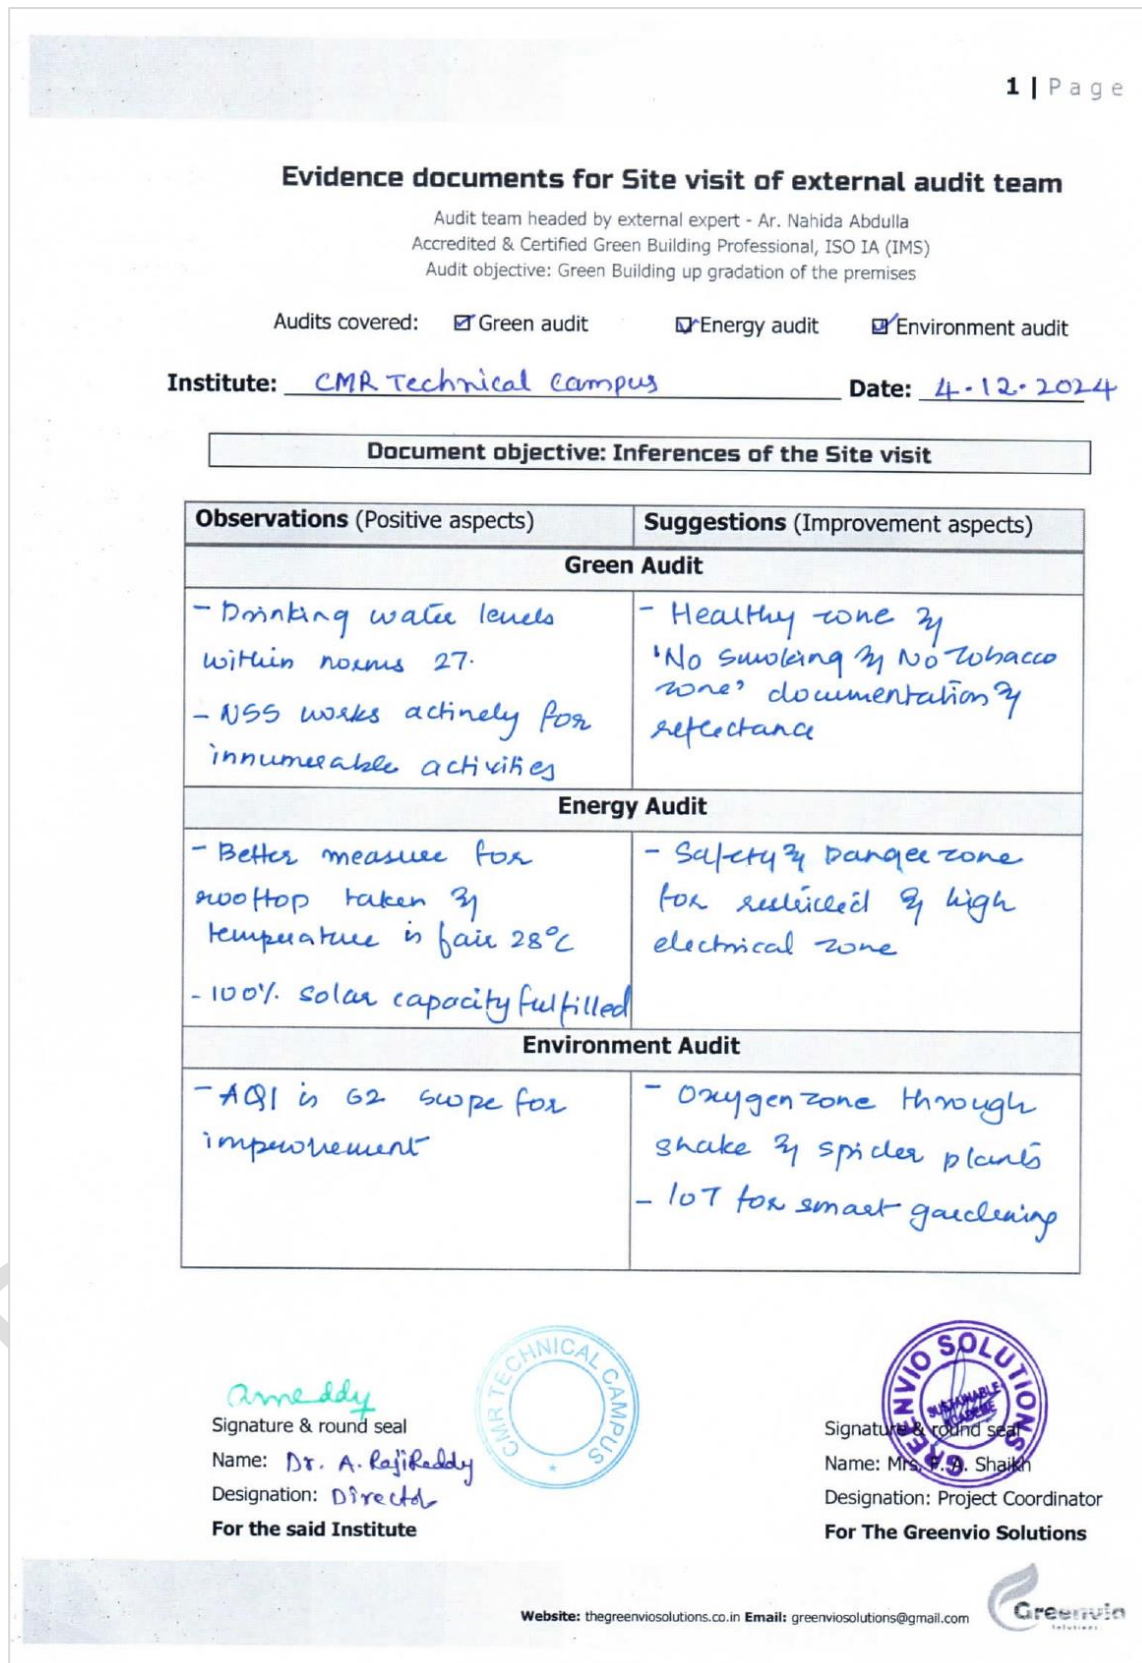 1 | Page
Evidence documents for Site visit of external audit team
Audit team headed by external expert - Ar. Nahida Abdulla
Accredited & Certified Green Building Professional, ISO IA (IMS)
Audit objective: Green Building up gradation of the premises
Audits covered: ☑ Green audit ☑ Energy audit ☑ Environment audit
Institute: CMR Technical Campus Date: 4.12.2024
Document objective: Inferences of the Site visit
Observations (Positive aspects) Suggestions (Improvement aspects)
Green Audit
- Drinking water levels
within norms 27.
- NSS works actively for
innumerable activities
- Healthy zone &
'No Smoking & No Tobacco
zone' documentation &
reflectance
Energy Audit
- Better measure for
rooftop taken &
temperature is fair 28°C
- 100% solar capacity fulfilled
- Safety & Danger zone
for restricted & high
electrical zone
Environment Audit
- AQI is 62 scope for
improvement
- Oxygen zone through
snake & spider plants
- IoT for smart gardening
Signature & round seal
Name: Dr. A. Raji Reddy
Designation: Director
For the said Institute
CMR TECHNICAL CAMPUS
GREENVIO SOLUTIONS
SUSTAINABLE
Signature & round seal
Name: Mrs. F. A. Shaikh
Designation: Project Coordinator
For The Greenvio Solutions
Website: thegreenviosolutions.co.in Email: greenviosolutions@gmail.com
Greenvio
Solutions